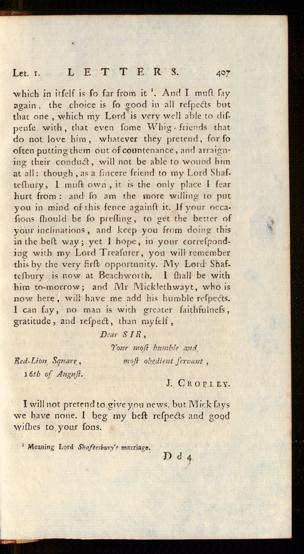 Let. 1. LETTERS. 407
which in itſelf is ſo far from it ¹. And I muſt ſay
again, the choice is ſo good in all reſpects but
that one, which my Lord is very well able to diſ-
penſe with, that even ſome Whig-friends that
do not love him, whatever they pretend, for ſo
often putting them out of countenance, and arraign-
ing their conduct, will not be able to wound him
at all: though, as a ſincere friend to my Lord Shaf-
teſbury, I muſt own, it is the only place I fear
hurt from: and ſo am the more willing to put
you in mind of this fence againſt it. If your occa-
ſions ſhould be ſo preſſing, to get the better of
your inclinations, and keep you from doing this
in the beſt way; yet I hope, in your correſpond-
ing with my Lord Treaſurer, you will remember
this by the very firſt opportunity. My Lord Shaf-
teſbury is now at Beachworth. I ſhall be with
him to-morrow; and Mr Micklethwayt, who is
now here, will have me add his humble reſpects.
I can ſay, no man is with greater faithfulneſs,
gratitude, and reſpect, than myſelf,
Dear SIR,
Your moſt humble and
Red-Lion Square, moſt obedient ſervant,
16th of Auguſt.
J. CROPLEY.
I will not pretend to give you news, but Mick ſays
we have none. I beg my beſt reſpects and good
wiſhes to your ſons.
¹ Meaning Lord Shafteſbury's marriage.
D d 4